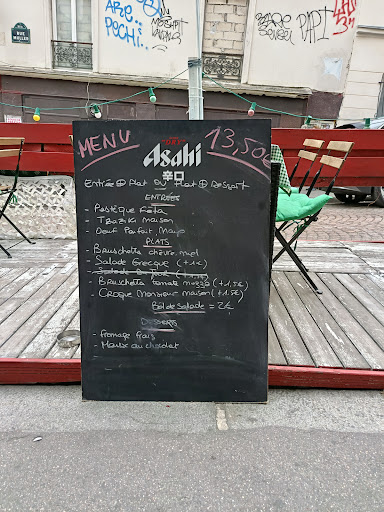 RUE MULLER
ARE,
PECHI..
PAPI
MENU
13,50€
Asahi
辛口
Entrée ⊕ Plat ou Plat ⊕ Dessert
ENTRÉES
- Pastèque Féta
- Tzaziki Maison
- Oeuf Parfait, Mayo
PLATS
- Bruschetta chèvre, miel
- Salade Grecque (+1€)
- Bruschetta tomate mozza (+1,5€)
- Croque Monsieur maison (+1,5€)
Bol de Salade = 2€
DESSERTS
- fromage frais
- Moelleux au chocolat